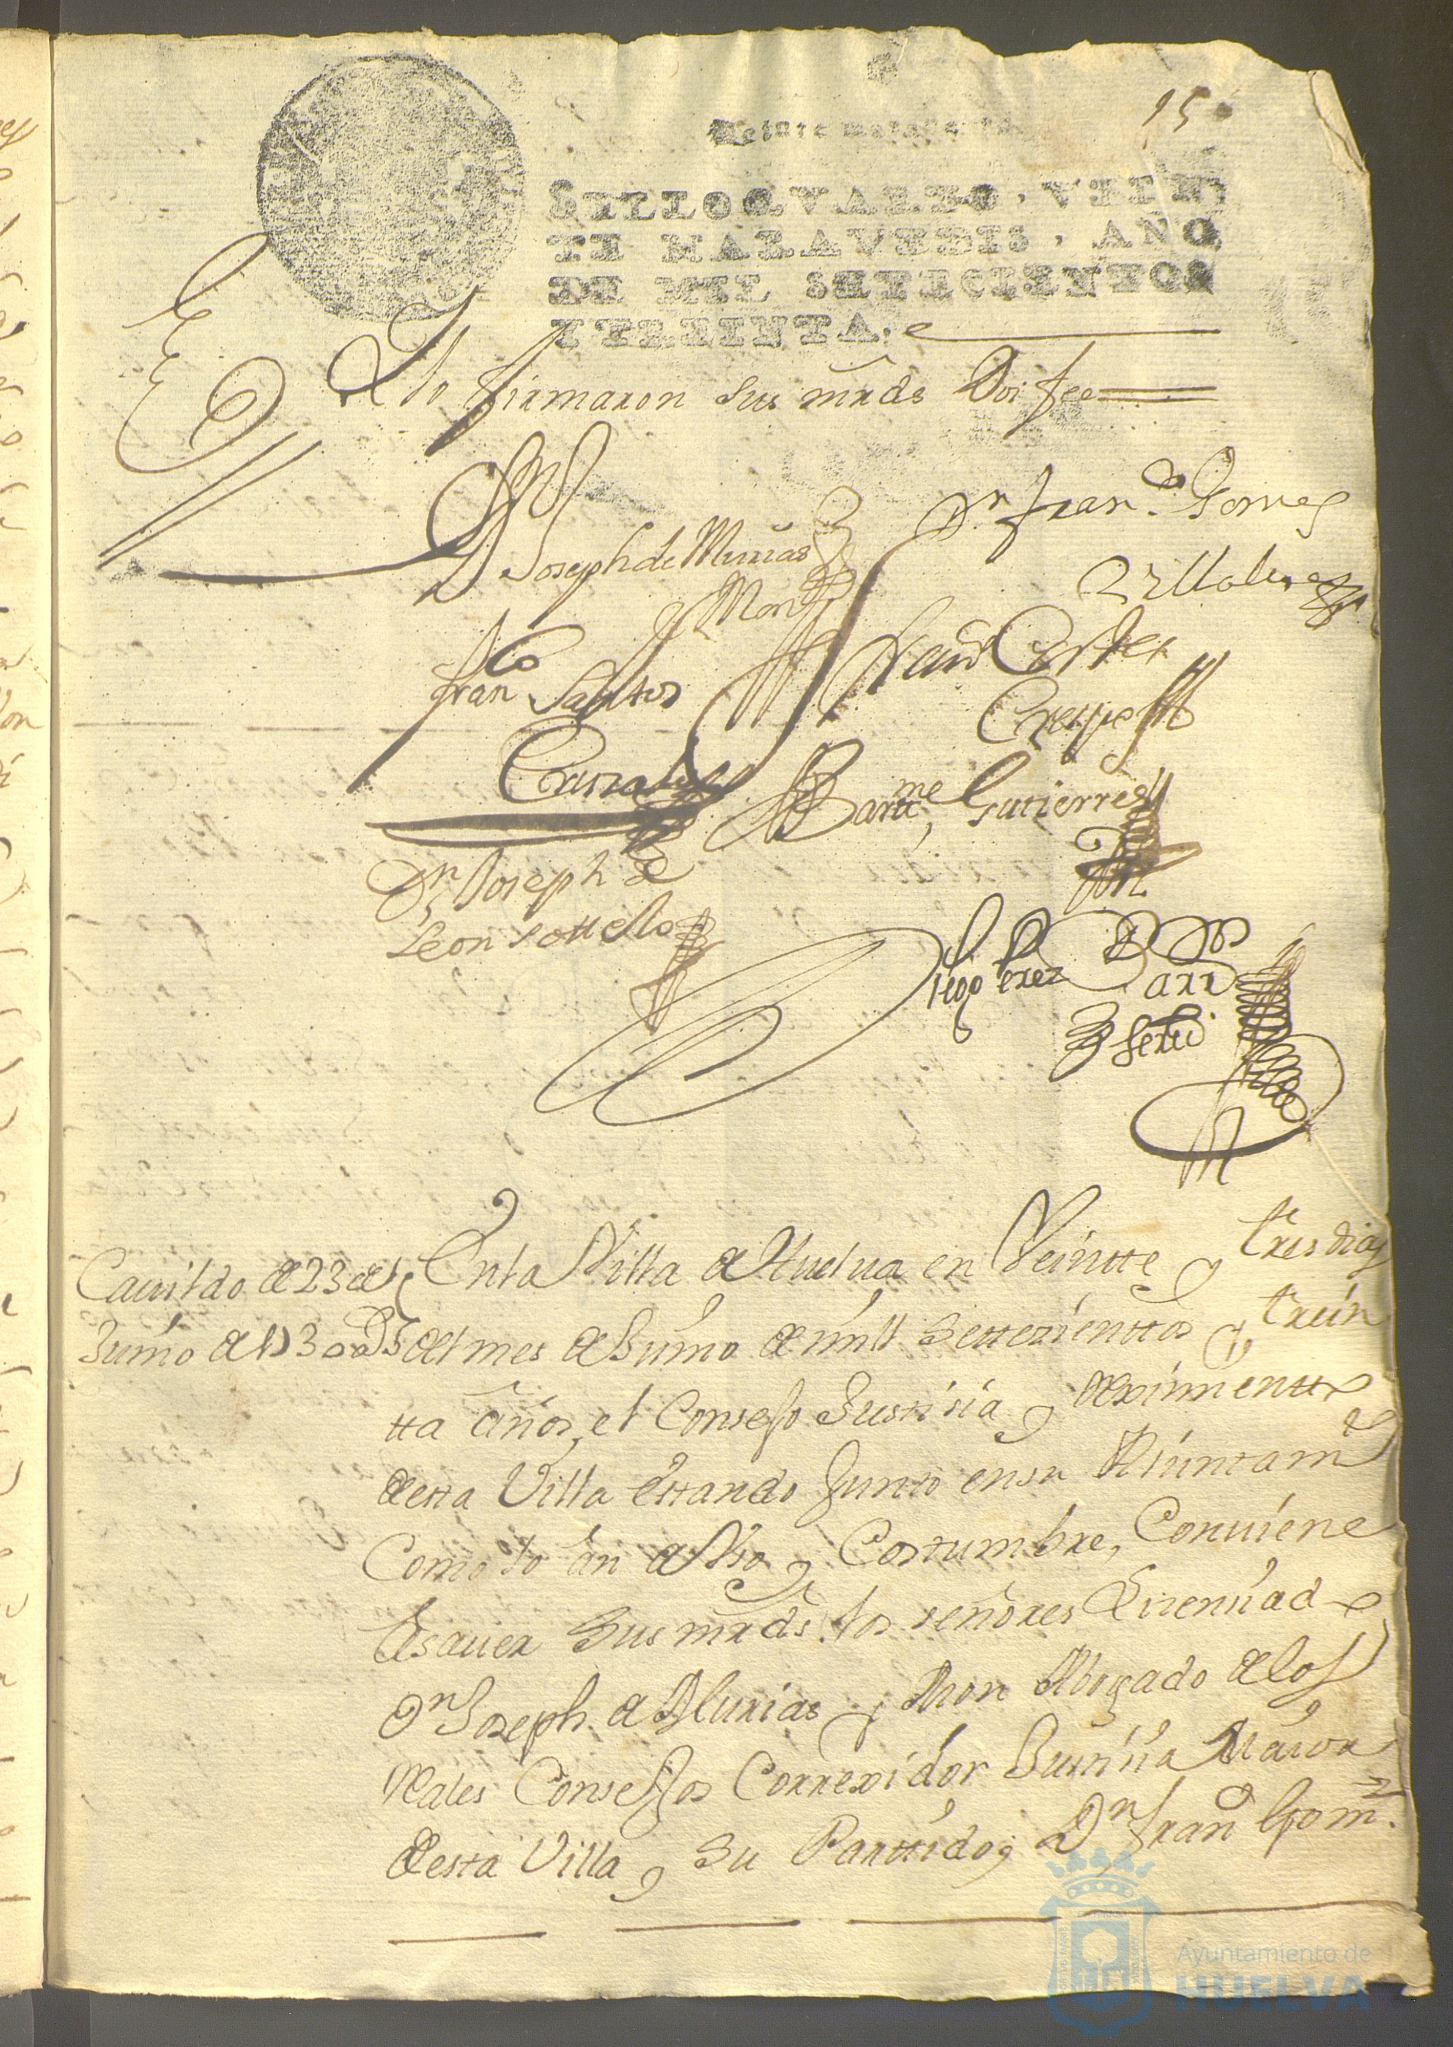 15
Veinte marave
SELLO QVARTO, VEIN
TE MARAVEDIS, AÑO
DE MIL SETECIENTOS
Y TREINTA.
lo firmaron sus mrds Doi fee
Dn Fran.co Gomes
Joseph de Murias
Mon
Villalu
Franco Santos
Juan Cortes
Crespo
Bartme, Gutierres
Dn Joseph de
Leon sottello
Diego Perez Barr
Cauildo de 23 de
Junio de 1730 as
En la Villa de Huelua en Veintte y tres dias
del mes de Junio de mill settecienttos y trein
tta años, el Consejo Justicia y Reximientto
de esta Villa estando Junto en su Aiuntamto
Como lo an de Vso y Costumbre, Conuiene
A sauer sus mrds. los señores Lizenciado
Dn Joseph de Murias y Mon Abogado de los
Reales Consejos Correxidor Justicia Maior
de esta Villa y su Parttido, Dn Franco Gomz.
Ayuntamiento de
HUELVA